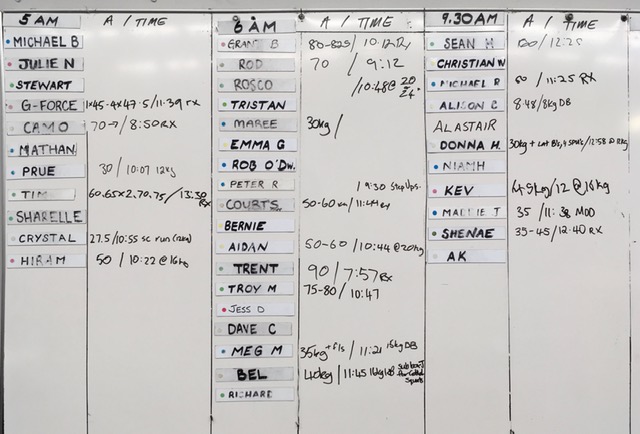 5 AM A / TIME
MICHAEL B
JULIE N
STEWART
G-FORCE 1x45-4x47.5/11:39 RX
CAMO 70-7/8:50RX
NATHAN
PRUE 30/10:07 12kg
TIM 60.65x2.70.75/13:30 RX
SHARELLE
CRYSTAL 27.5/10:55 sc run (12kg)
HIRAM 50 / 10:22 @16kg
6 AM A / TIME
GRANT B 80-825/10:12 Rx
ROD 70 / 9:12
ROSCO /10:48@ 20/24.
TRISTAN
MAREE 30kg /
EMMA G
ROB O'DW.
PETER R / 9:30 Step Ups.
COURTS 50-60 / 11:44 Rx
BERNIE
AIDAN 50-60 / 10:44 @20kg
TRENT 90 / 7:57 Rx
TROY M 75-80 / 10:47
JESS D
DAVE C
MEG M 35kg / 11:21 15kg DB
BEL 40kg / 11:45 16kg KB
RICHARD
9.30AM A / TIME
SEAN H 120 / 12:25
CHRISTIAN N
MICHAEL R 60 / 11:25 RX
ALISON C 8:48/8kg DB
ALASTAIR
DONNA H. 30kg + /12:58 @ 12kg
NIAMH
KEV /12 @16kg
MADDIE T 35 / 11:38 MOD
SHENAE 35-45/12:40 RX
AK